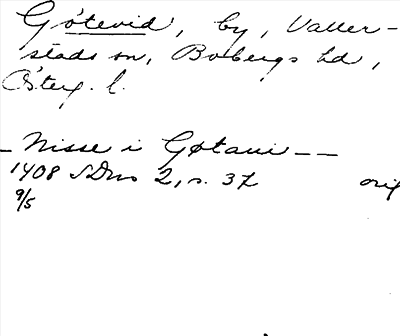 Götevid, by, Valler-
stads sn, Bobergs hd,
Österg. l.
_ Nisse i Gøtaui _ _
1408 SDns 2, s. 37 orig
9/5